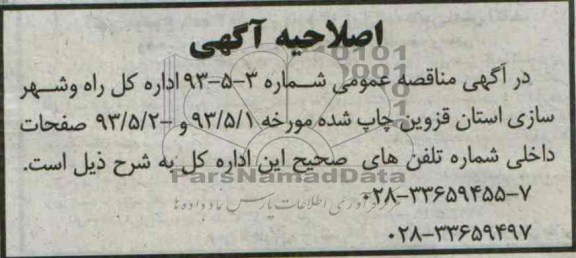 اصلاحیه آگهی
در آگهی مناقصه عمومی شماره ۳-۵-۹۳ اداره کل راه وشهر
سازی استان قزوین چاپ شده مورخه ۹۳/۵/۱ و -۹۳/۵/۲ صفحات
داخلی شماره تلفن های صحیح این اداره کل به شرح ذیل است.
ParsNamadData
۰۲۸-۳۳۶۵۹۴۵۵-۷
۰۲۸-۳۳۶۵۹۴۹۷